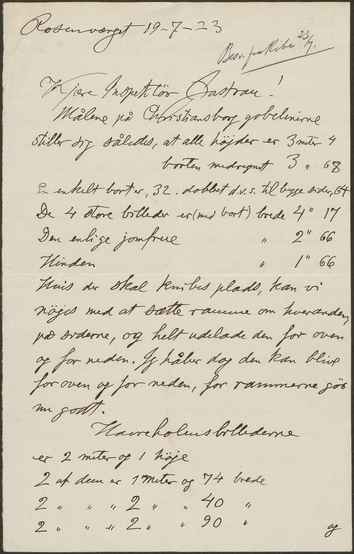 Rosenvænget 19-7-23
Besv. fra Ribe 23/7.
Kjære Inspektør Grastrau!
Målene på Christiansborg gobelinerne
stiller sig således, at alle højder er 3 mter 4
borten medregnet 3 " 68
enkelt bort er, 32. dobbelt d.v.s. til begge sider, 64
De 4 store billeder er (med bort) brede 4" 17
Den enlige jomfrue " 2" 66
Hinden " 1" 66
Hvis der skal knibes plads, kan vi
nøjes med at sætte ramme om hverandre,
på siderne, og helt udelade den for oven
og for neden. Jeg håber dog den kan blive
for oven og for neden, for rammerne gör
nu godt.
Havreholmsbillederne
er 2 meter og 1 höje
2 af dem er 1 meter og 74 brede
2 " " " 2 " 40 "
2 " " " 2 " 90 " og